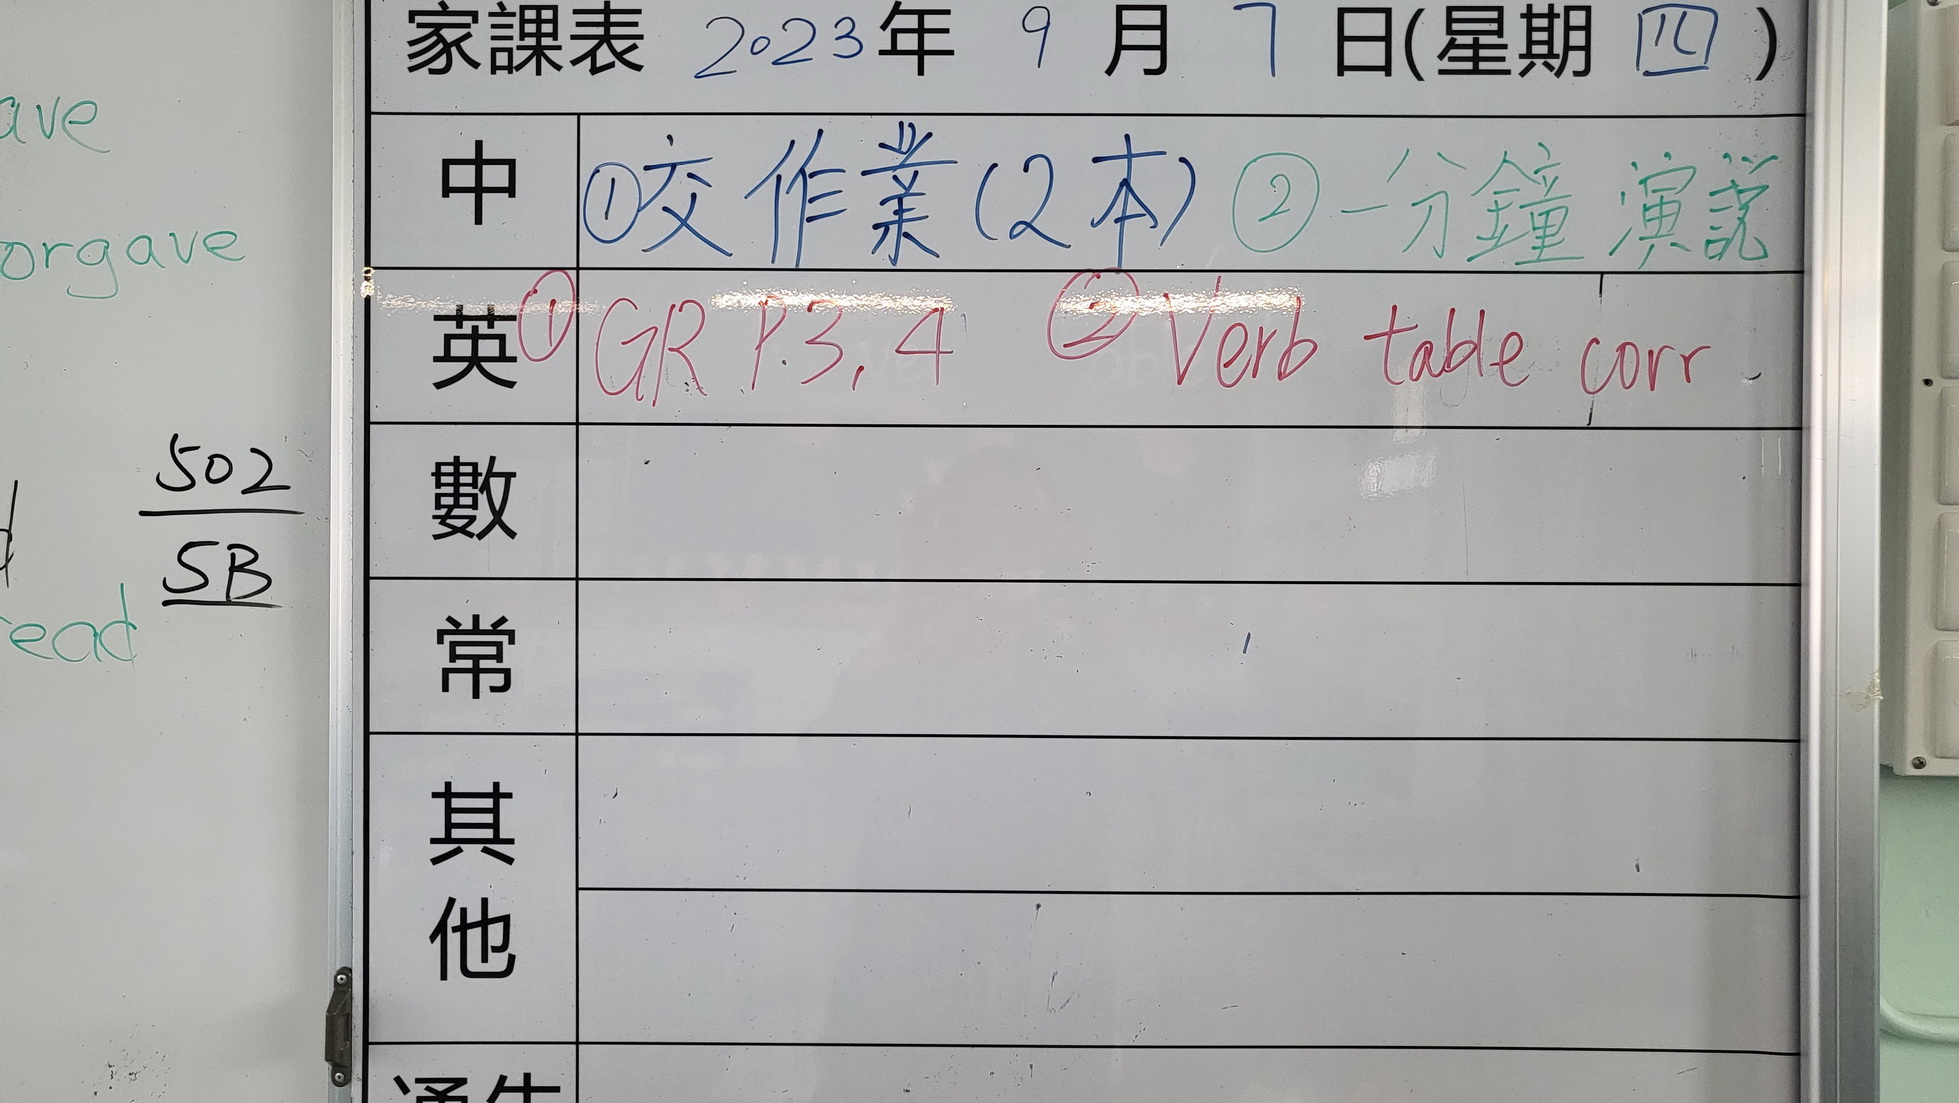 家課表 2023年 9 月 7 日(星期 四 )
中 ①交作業(2本) ②一分鐘演說
英 ①GR P.3,4 ②Verb table corr
數
常
其他
通告
ave
orgave
502
5B
read